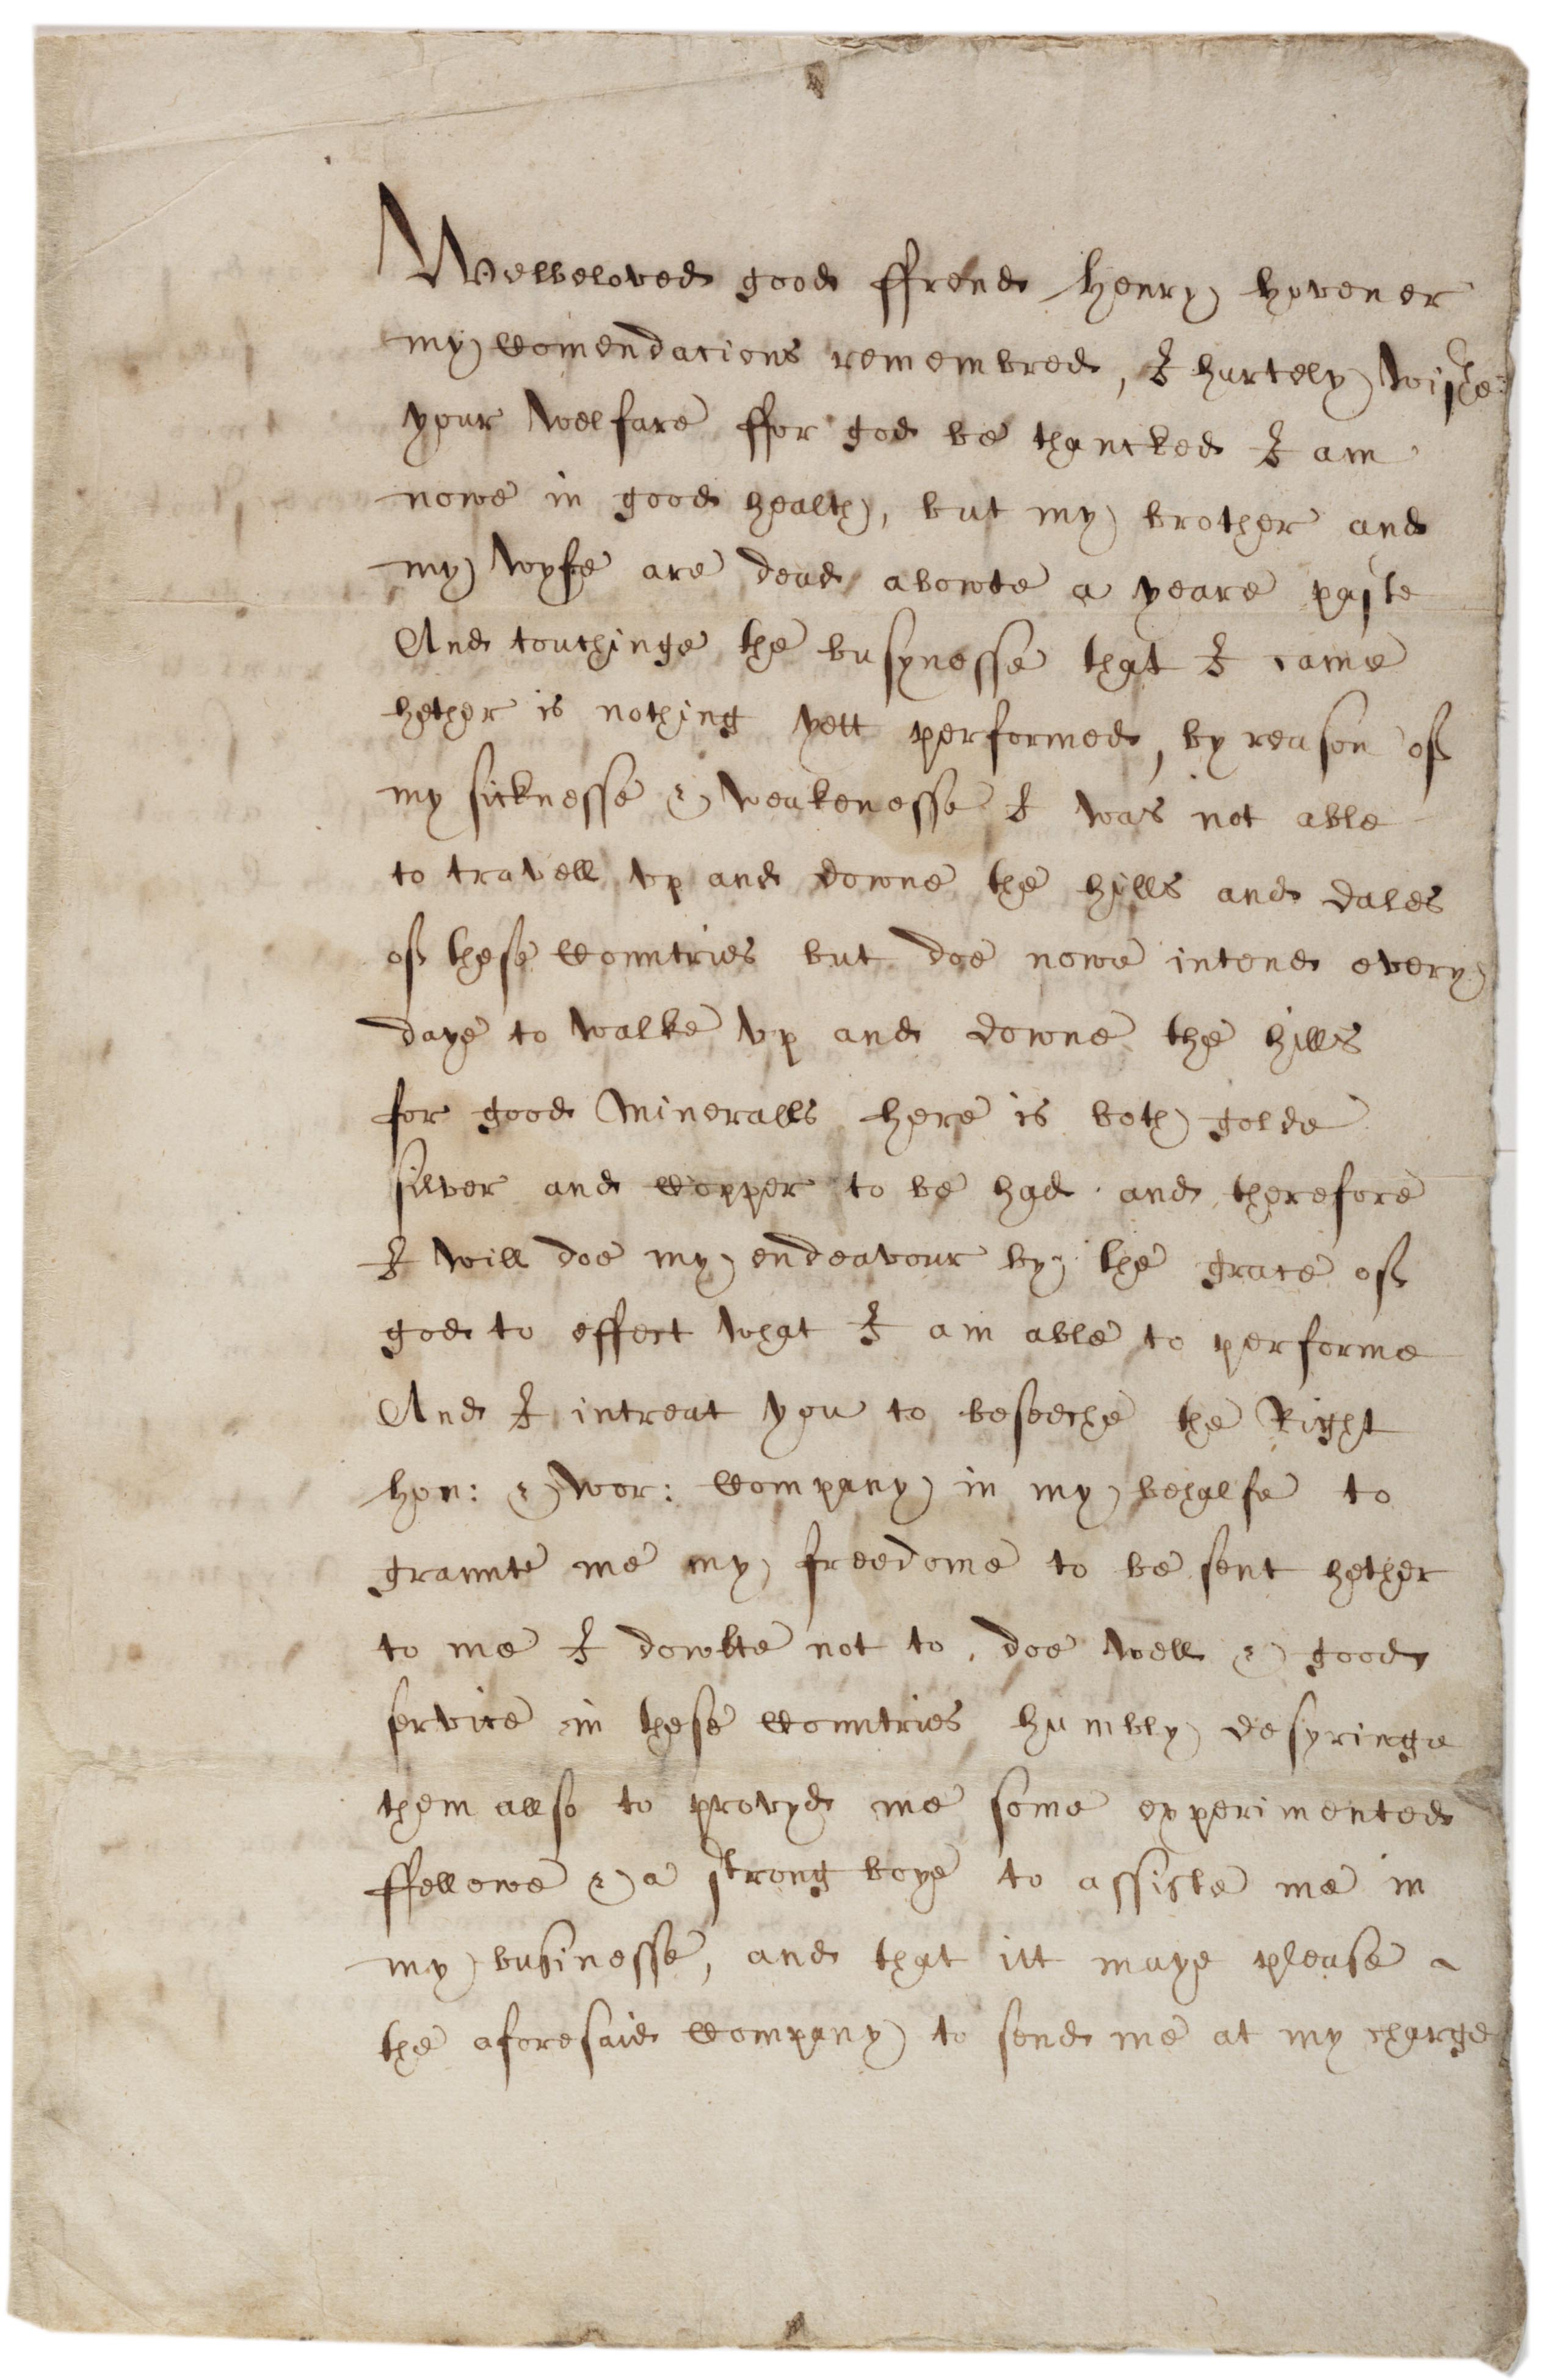 Welbeloved good ffrend Henry Hovener
my Comendacions remembred, I hartely wishe
your welfare ffor god be thancked I am
nowe in good health, but my brother and
my wyfe are dead abowte a yeare paste
And touchinge the busynesse that I came
hether is nothing yett performed, by reason of
my sicknesse & weakenesse I was not able
to travell vp and downe the hills and dales
of these Countries but doe nowe intend every
daye to walke vp and downe the hills
for good Mineralls here is both golde
silver and Copper to be had and therefore
I will doe my endeavour by the grace of
god to effect what I am able to performe
And I intreat you to beseeche the Right
hon: & wor: Company in my behalfe to
graunte me my freedome to be sent hether
to me I dowbte not to doe well & good
service in these Countries humbly desyringe
them allso to provyd me some experimented
ffellowe & a strong boye to assiste me in
my businesse, and that itt maye please
the aforesaid Company to send me at my charge